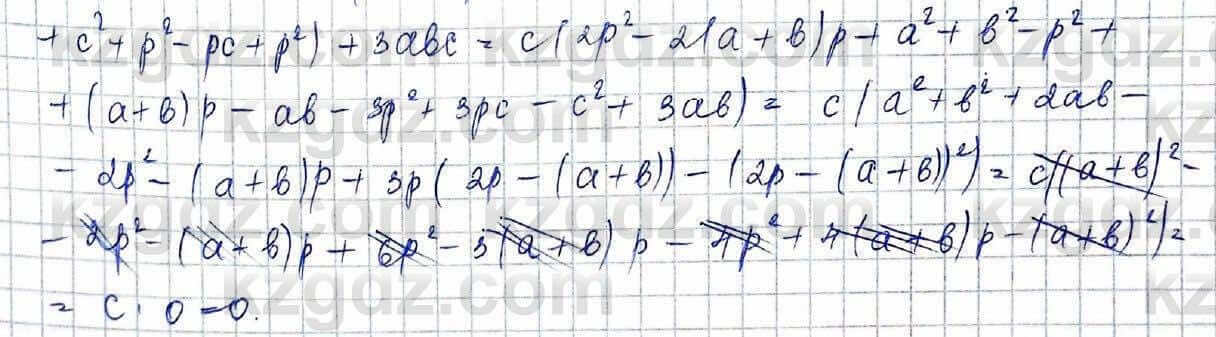 + c² + p² - pc + p²) + 3abc = c(2p² - 2(a + в)p + a² + в² - p² +
+ (a+в)p - aв - 3p² + 3pc - c² + 3aв) = c(a² + в² + 2aв -
- 2p² - (a+в)p + 3p(2p - (a+в)) - (2p - (a+в))²) = c((a+в)² -
- 2p² - (a+в)p + 6p² - 3(a+в)p - 4p² + 4(a+в)p - (a+в)²) =
= c · 0 = 0.
kzgdz.com